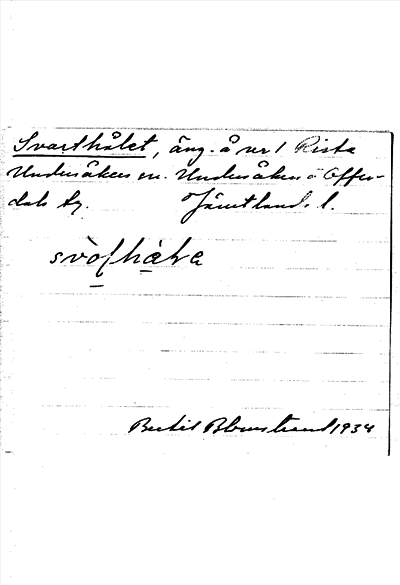 Svarthålet, äng. å nr 1 Rista
Undersåkers sn. Undersåkers o Offer-
dals tg. Jämtlands l.
Bertil Blomstrand 1934